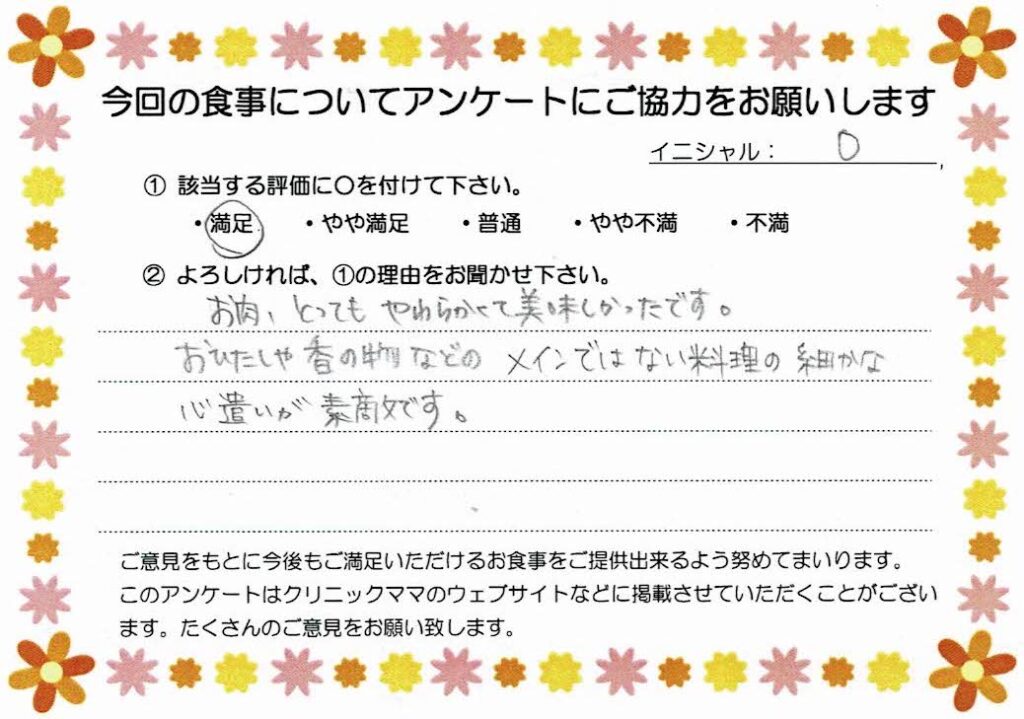 今回の食事についてアンケートにご協力をお願いします
イニシャル： O
① 該当する評価に〇を付けて下さい。
・満足 ・やや満足 ・普通 ・やや不満 ・不満
② よろしければ、①の理由をお聞かせ下さい。
お肉、とっても やわらかくて美味しかったです。
おひたしや 香の物などの メインではない料理の 細かな
心遣いが 素敵です。
ご意見をもとに今後もご満足いただけるお食事をご提供出来るよう努めてまいります。
このアンケートはクリニックママのウェブサイトなどに掲載させていただくことがござい
ます。たくさんのご意見をお願い致します。